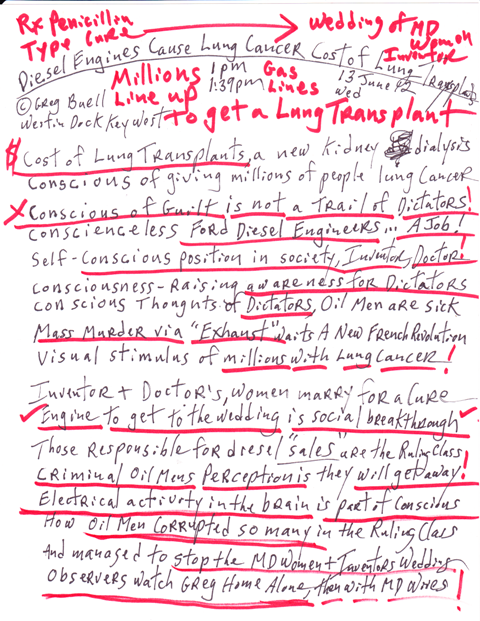 Rx Penicillin Type Cure → Wedding of MD Woman Inventor
Diesel Engines Cause Lung Cancer Cost of Lung Transplants
Millions 1pm Gas 13 June
Line up 1:39pm Lines Wed
© Greg Buell
Westin Dock Key West to get a Lung Transplant
$ Cost of Lung Transplants, a new kidney dialysis
Conscious of giving millions of people lung cancer
X Conscious of Guilt is not a Trail of Dictators!
Conscienceless Ford Diesel Engineers... A Job!
Self-conscious position in society, Inventor, Doctor!
Consciousness-Raising awareness for Dictators
conscious Thoughts of Dictators, Oil Men are sick
Mass Murder via "Exhaust" waits A New French Revolution
Visual stimulus of millions with Lung Cancer!
Inventor + Doctor's, women marry for a Cure
✓ Engine to get to the wedding is social breakthrough ✓
Those Responsible for diesel "sales" are the Ruling Class
Criminal Oil Mens Perception is they will get away!
Electrical activity in the brain is part of Conscious
How Oil Men Corrupted so many in the Ruling Class
And managed to stop the MD Women + Inventors Wedding
Observers watch Greg Home Alone, then with MD Wives!